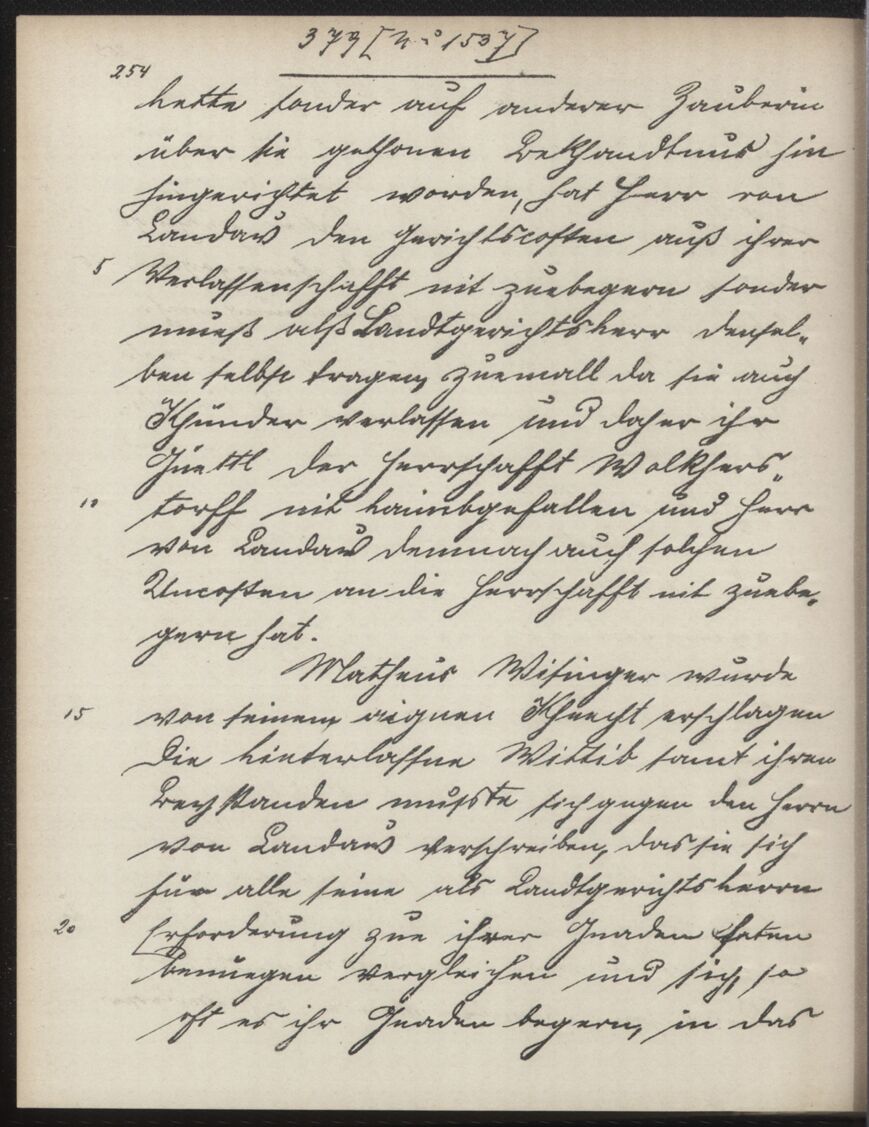 379 [Nº 1537]
254
hette sonder auf anderer Zauberin
über sie gethonen Bekhandtnus hin
hingerichtet worden, hat Herr von
Landaw den Gerichtscosten auß ihrer
5 Verlassenschafft nit zuebegern sonder
mueß alß Landtgerichtsherr densel„
ben selbst tragen, zuemall da sie auch
Khünder verlassen und daher ihr
Güettl der Herrschafft Wolkhers„
10 torff nit haimbgefallen und Herr
von Landaw demnach auch solchen
Uncosten an die Herrschafft nit zuebe„
gern hat.
Matheus Wisinger wurde
15 von seinem aignen Khnecht erschlagen
Die hinterlassne Wittib samt ihren
Beyständen muste sich gegen den Herrn
von Landaw verschreiben, das sie sich
für alle seine als Landtgerichtsherrn
20 Erforderung zue ihrer Gnaden saten
benüegen vergleichen und sich, so
oft es ihr Gnaden begern, in das